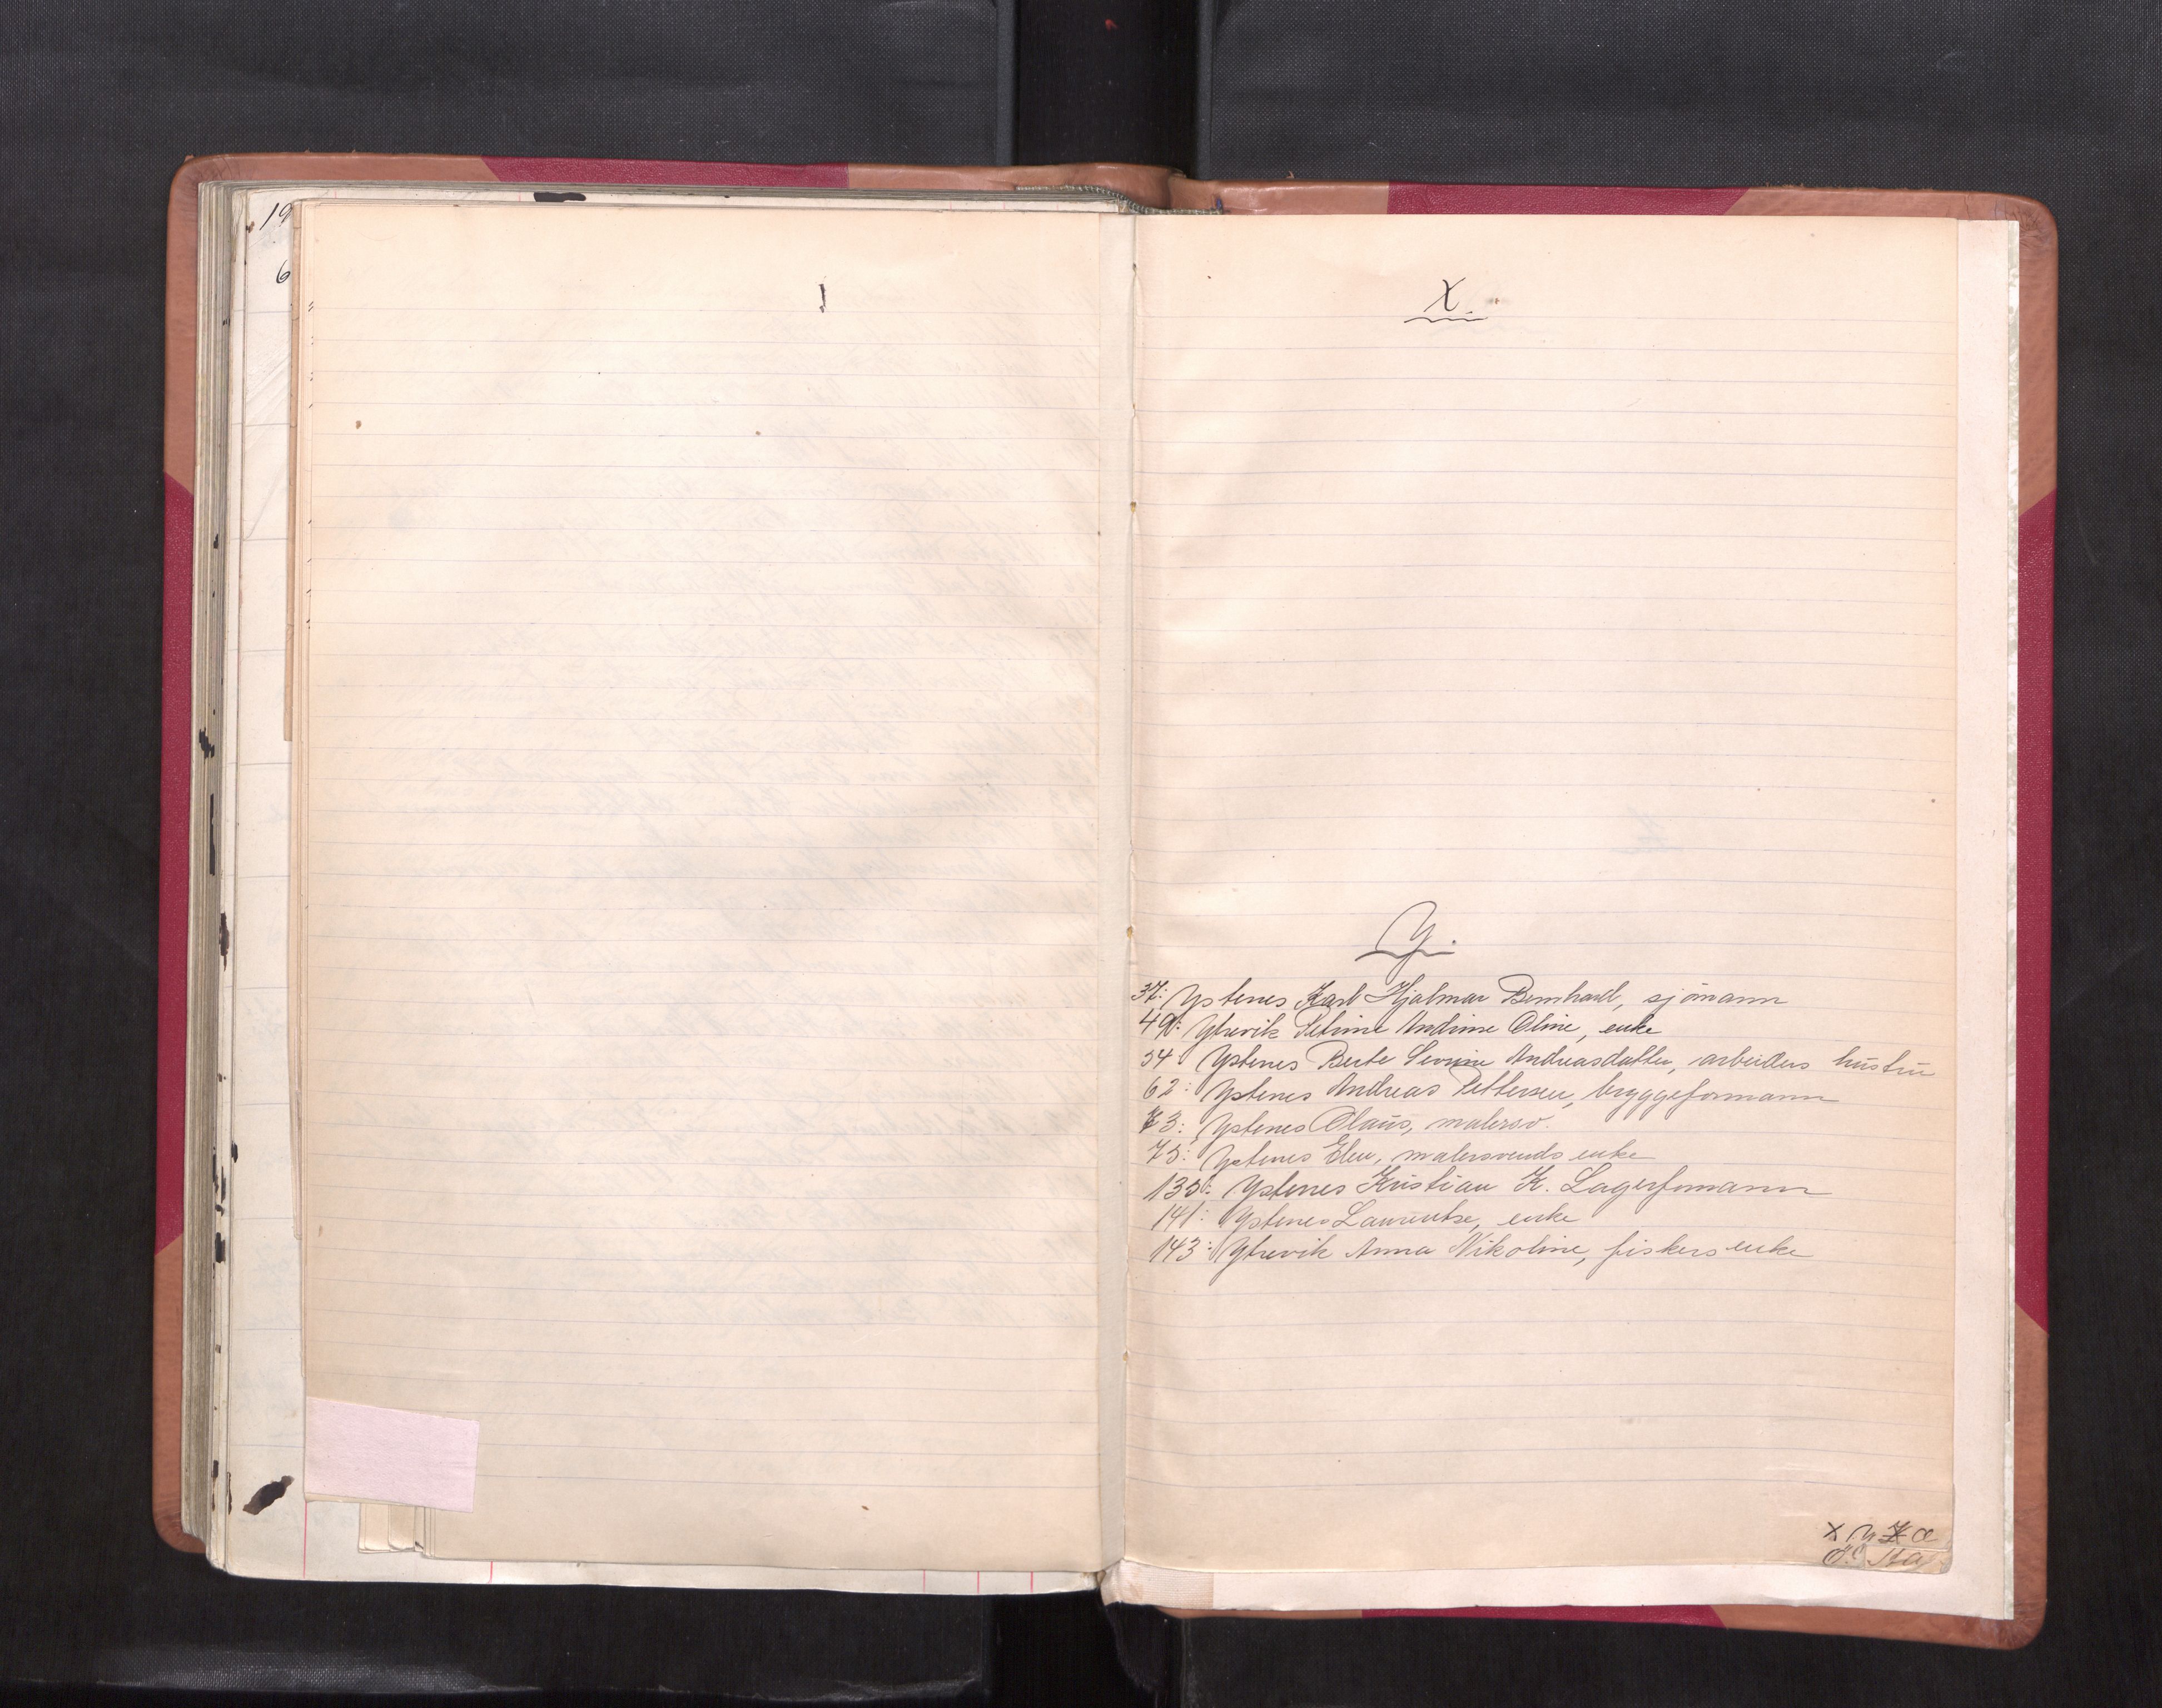 19
6
X.
Y.
37: Ystenes Karl Hjalmar Bernhard, sjömann
49: Ytrevik Petrine Andrine Oline, enke
54 Ystenes Berte Sevrine Andreasdatter, arbeiders hustru
62: Ystenes Andreas Pettersen, bryggeformann
73: Ystenes Olaus, malersv.
75: Ystenes Elen, malersvends enke
135: Ystenes Kristian K. Lagerformann
141: Ystenes Laurentse, enke
143: Ytrevik Anna Nikoline, fiskers enke
X Y Z Æ